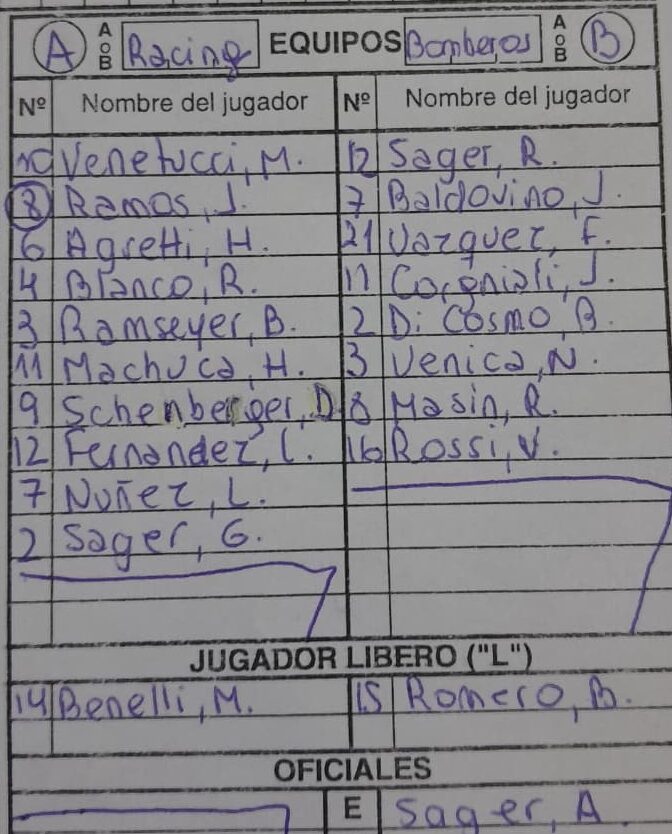 A AoB Racing EQUIPOS Bomberos AoB B
Nº Nombre del jugador Nº Nombre del jugador
10 Venetucci, M. 12 Sager, R.
8 Ramos, J. 7 Baldovino, J.
6 Agretti, H. 21 Vazquez, F.
4 Blanco, R. 11 J.
3 Ramseyer, B. 2 Di Cosmo, B.
11 Machuca, H. 3 Venica, N.
9 Schenberger, D. 8 Masin, R.
12 Fernandez, L. 16 Rossi, V.
7 Nuñez, L.
2 Sager, G.
JUGADOR LIBERO ("L")
14 Benelli, M. 15 Romero, B.
OFICIALES
E Sager, A